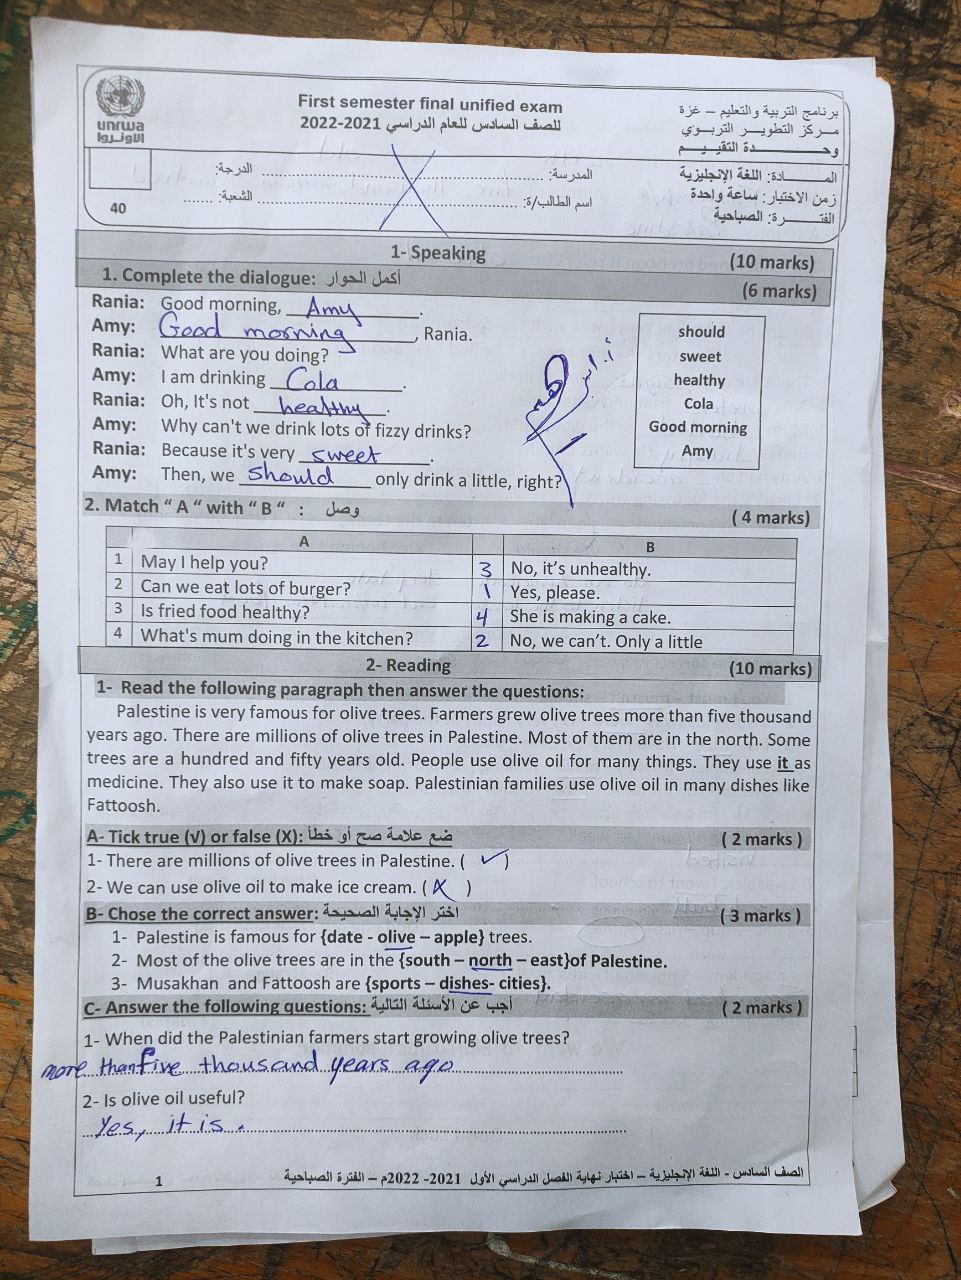 unrwa
الأونروا
First semester final unified exam
للصف السادس للعام الدراسي 2021-2022
برنامج التربية والتعليم – غزة
مركز التطوير التربوي
وحدة التقييم
المدرسة: ........ الدرجة:
اسم الطالب/ة: ........ الشعبة: ......
المادة: اللغة الإنجليزية
زمن الاختبار: ساعة واحدة
الفترة: الصباحية
40
1- Speaking (10 marks)
1. Complete the dialogue: أكمل الحوار (6 marks)
Rania: Good morning, Amy.
Amy: Good morning, Rania.
Rania: What are you doing?
Amy: I am drinking Cola.
Rania: Oh, It's not healthy.
Amy: Why can't we drink lots of fizzy drinks?
Rania: Because it's very sweet.
Amy: Then, we should only drink a little, right?
should
sweet
healthy
Cola
Good morning
Amy
2. Match “ A “ with “ B “ : وصل ( 4 marks)
A B
1 May I help you? 3 No, it’s unhealthy.
2 Can we eat lots of burger? 1 Yes, please.
3 Is fried food healthy? 4 She is making a cake.
4 What's mum doing in the kitchen? 2 No, we can’t. Only a little
2- Reading (10 marks)
1- Read the following paragraph then answer the questions:
Palestine is very famous for olive trees. Farmers grew olive trees more than five thousand
years ago. There are millions of olive trees in Palestine. Most of them are in the north. Some
trees are a hundred and fifty years old. People use olive oil for many things. They use it as
medicine. They also use it to make soap. Palestinian families use olive oil in many dishes like
Fattoosh.
A- Tick true (√) or false (X): ضع علامة صح أو خطأ ( 2 marks )
1- There are millions of olive trees in Palestine. ( ✓ )
2- We can use olive oil to make ice cream. ( X )
B- Chose the correct answer: اختر الإجابة الصحيحة ( 3 marks )
1- Palestine is famous for {date - olive – apple} trees.
2- Most of the olive trees are in the {south – north – east}of Palestine.
3- Musakhan and Fattoosh are {sports – dishes- cities}.
C- Answer the following questions: أجب عن الأسئلة التالية ( 2 marks )
1- When did the Palestinian farmers start growing olive trees?
more than five thousand years ago
2- Is olive oil useful?
Yes, it is.
الصف السادس - اللغة الإنجليزية – اختبار نهاية الفصل الدراسي الأول 2021- 2022م – الفترة الصباحية 1